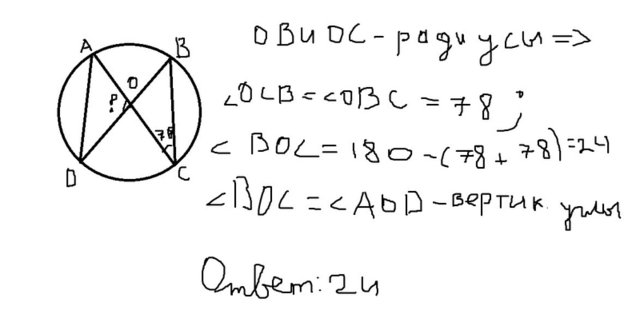 A
B
O
?
78
D
C
ОВ и ОС - радиусы =>
∠OCB = ∠OBC = 78°;
∠BOC = 180 - (78 + 78) = 24
∠BOC = ∠AOD - вертик. углы
Ответ: 24